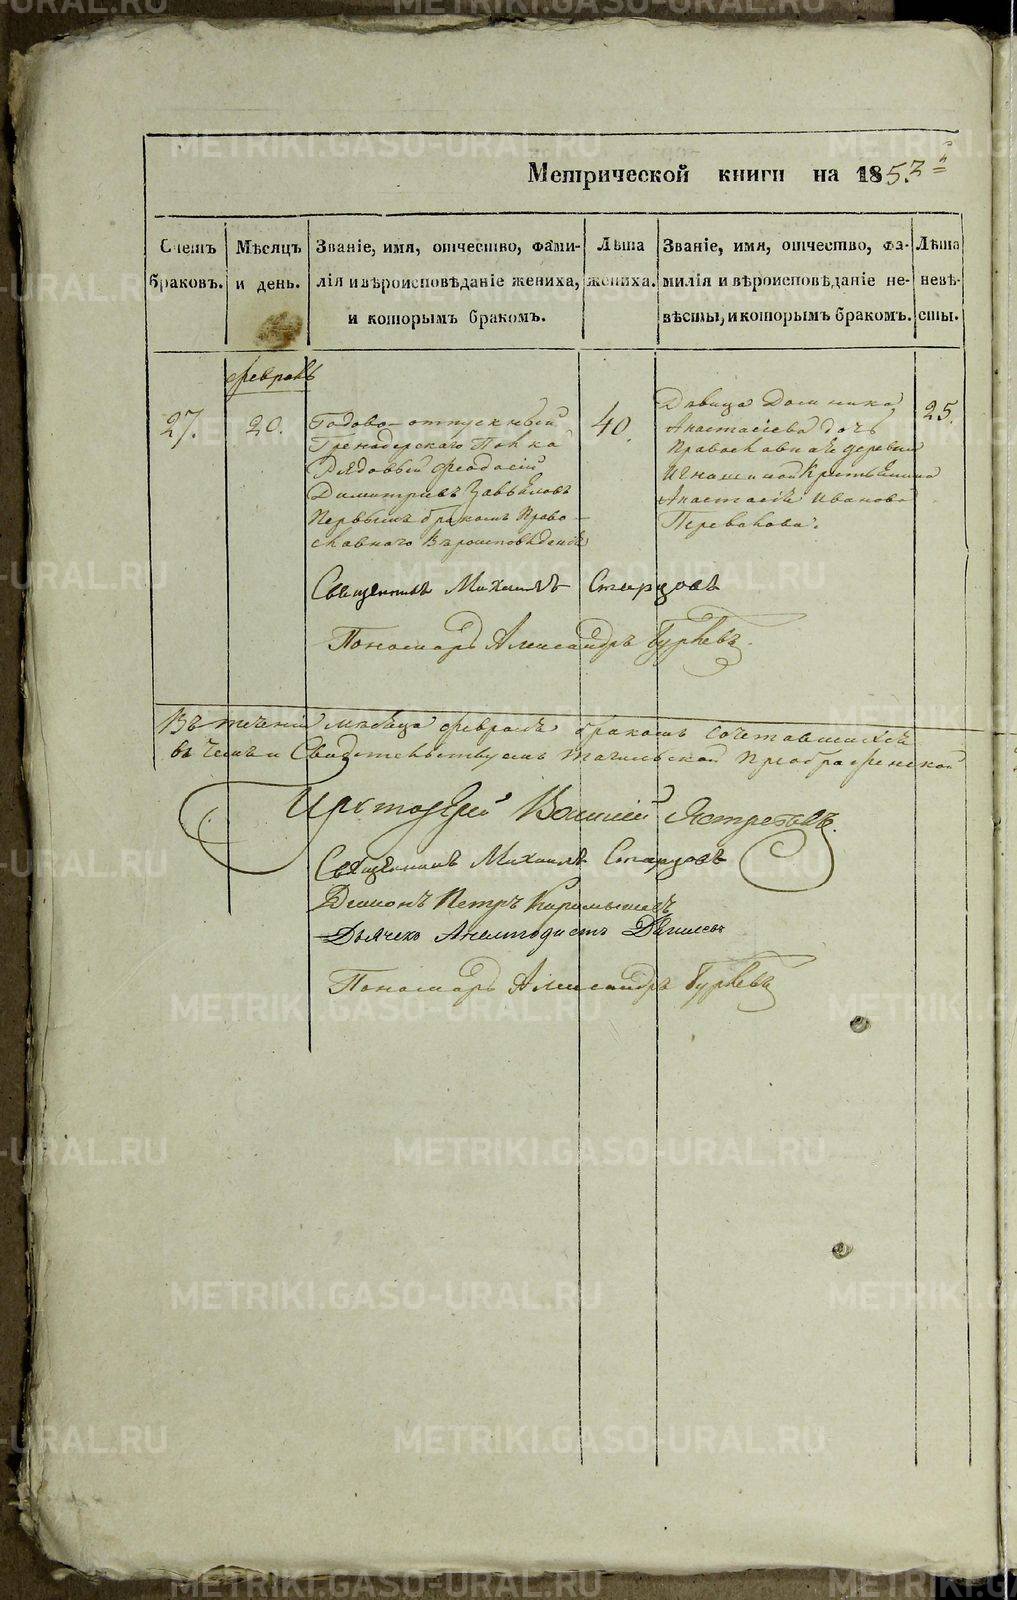 METRIKI.GASO-URAL.RU
Метрической книги на 1852 г
Счетъ браковъ.
Мѣсяцъ и день.
Званіе, имя, отчество, фами-
лія и вѣроисповѣданіе жениха,
и которымъ бракомъ.
Лѣта жениха.
Званіе, имя, отчество, фа-
милія и вѣроисповѣданіе не-
вѣсты, и которымъ бракомъ.
Лѣта невѣ-
сты.
февраль
27.
20.
Годово-отпускный
Гренадерскаго Полка
Рядовый Феодосій
Димитріевъ Завьяловъ
Первымъ бракомъ Право-
славнаго Вѣроисповѣданія
40.
Дѣвица Домника
Анастасіева дочь
Православная деревни
Игнашиной Крестьянина
Анастасія Иванова
Перевалова.
25.
Священникъ Михаилъ Старцовъ
Пономарь Александръ Гурьевъ
Въ теченіи мѣсяца февраля бракомъ сочетавшихся
въ чемъ и Свидѣтельствуемъ Тагильской Преображенской
Протоіерей Василій Ястребовъ.
Священникъ Михаилъ Старцовъ
Діаконъ Петръ Карамышевъ
Дьячекъ Анемподистъ
Пономарь Александръ Гурьевъ